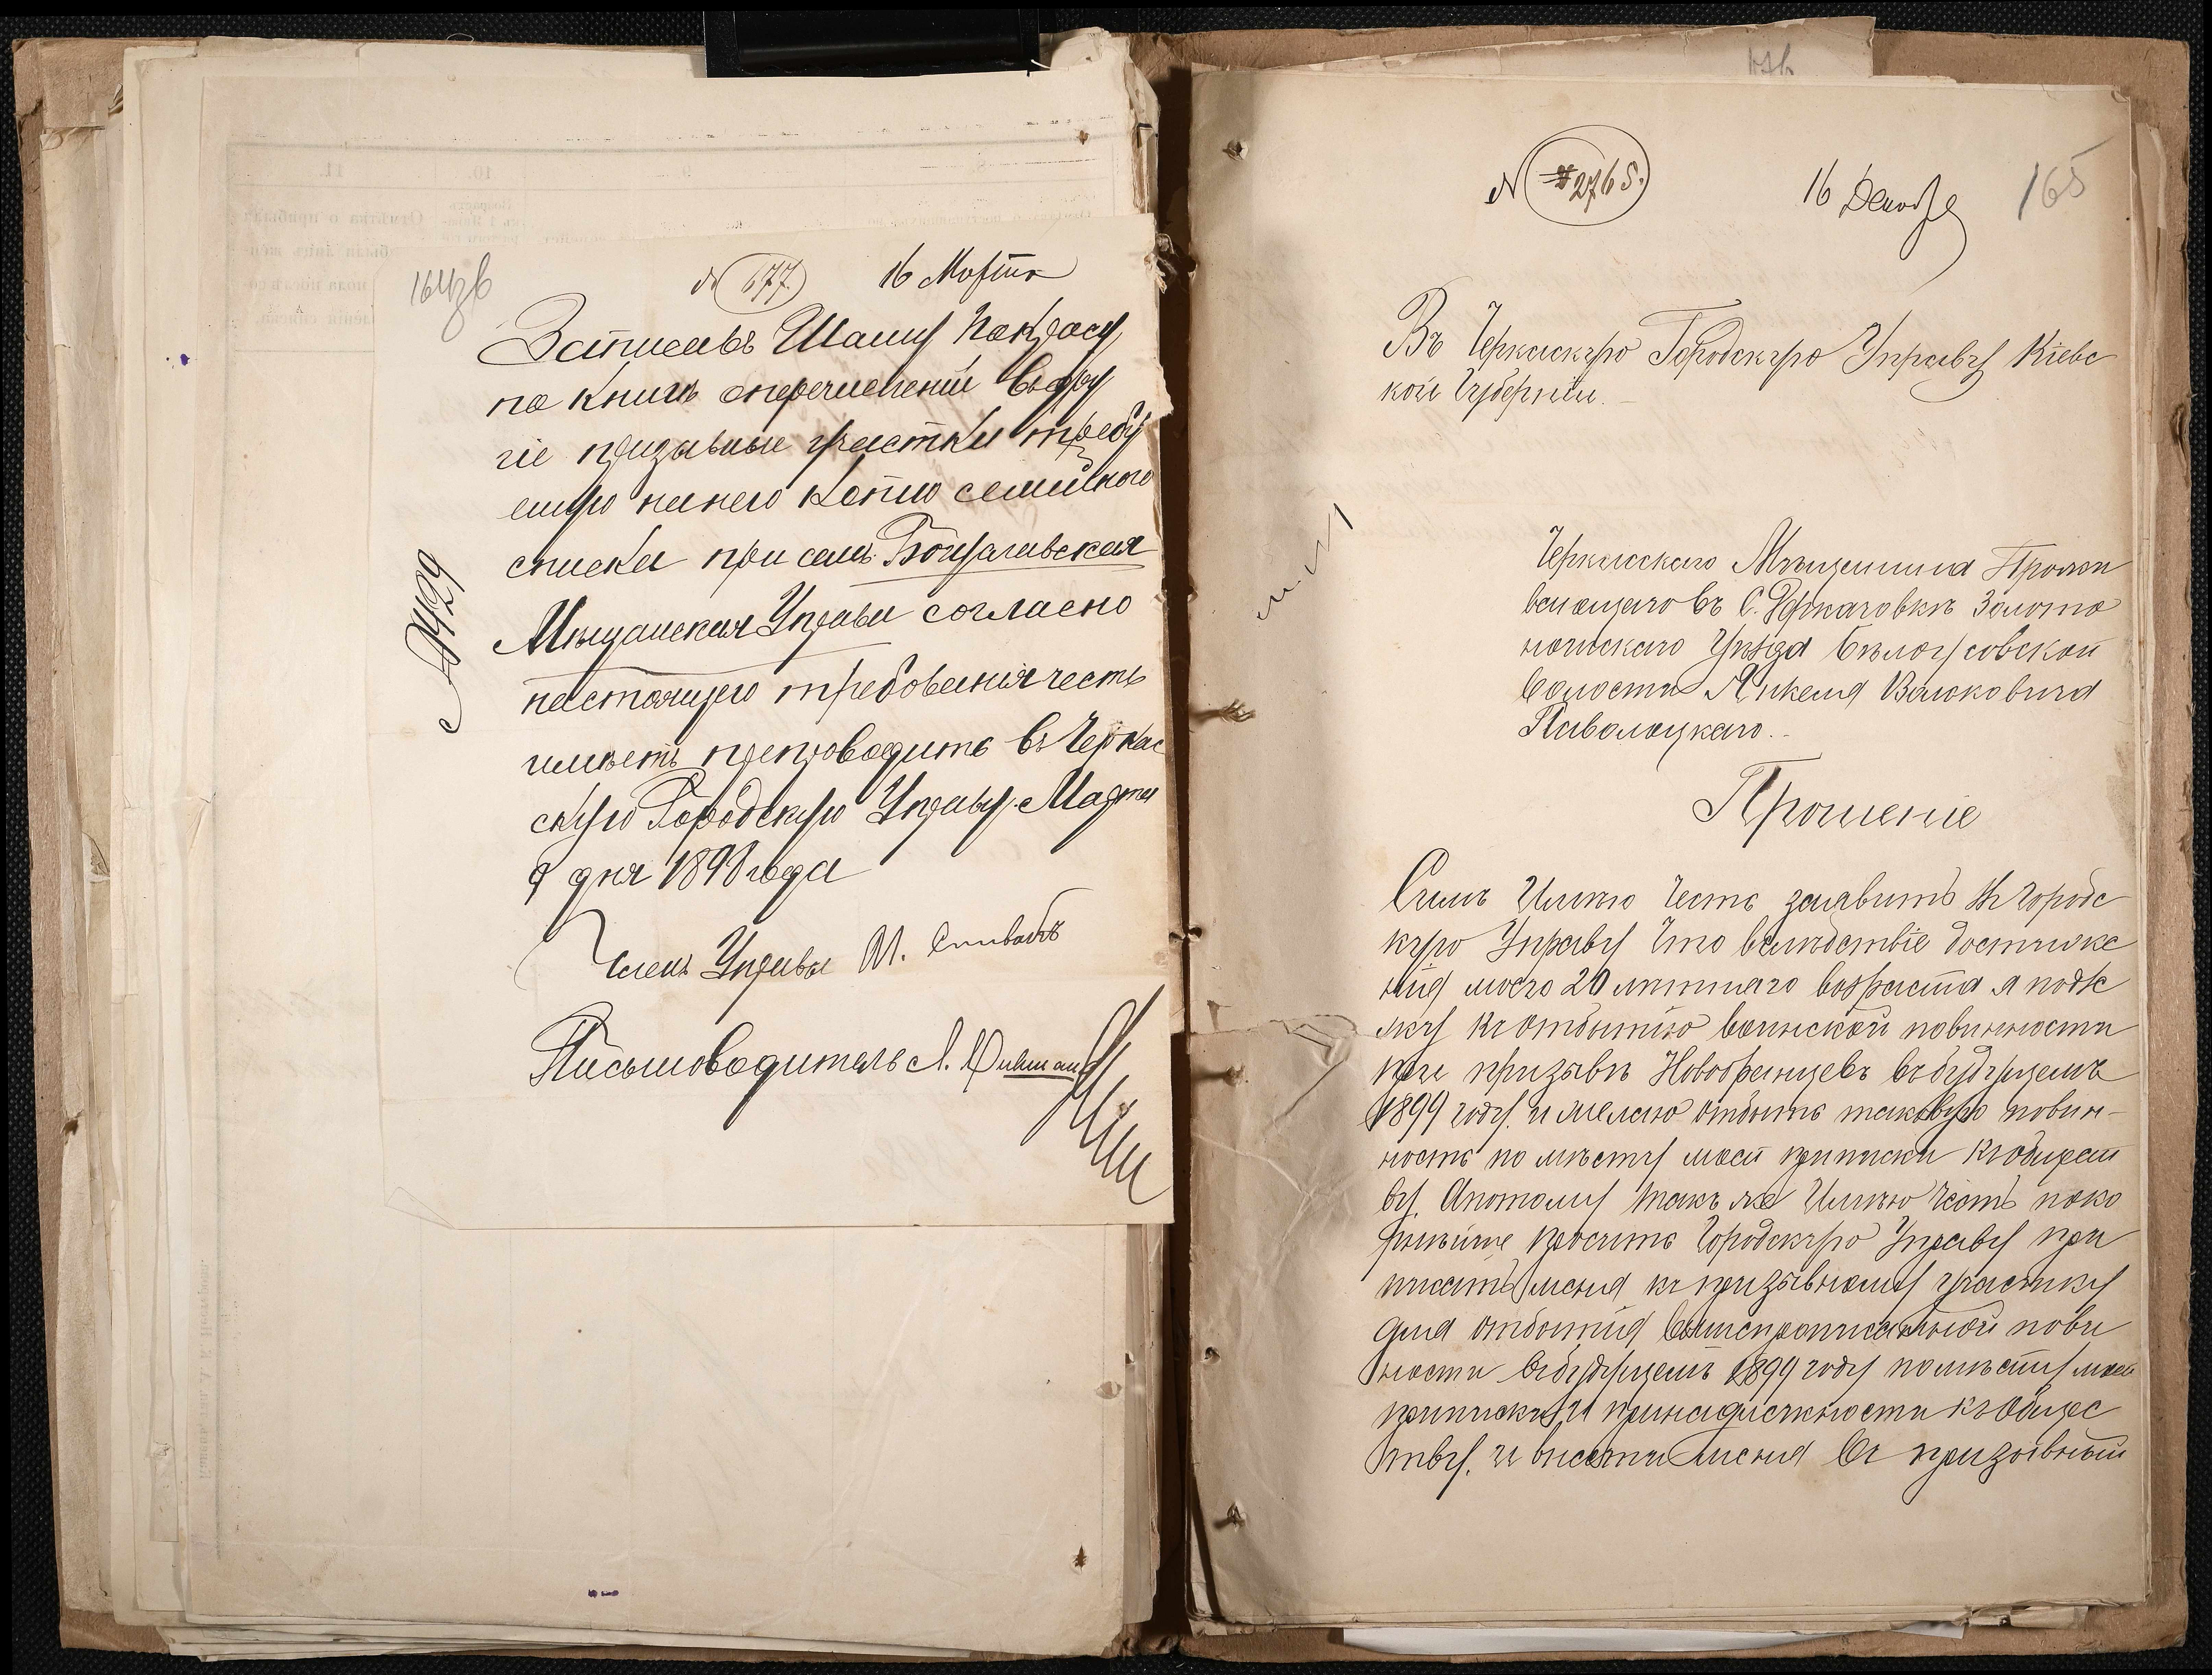 164зв
№ 677 16 Марта
Записавъ Шамиу Покрасу
по книгѣ о перечислений въ дру
гіе призывные участки требу
емую на него копію семейного
списка при семъ Богуславская
Мѣщанская Управа согласно
настоящего требованія честь
имѣетъ препроводить въ Черкас
скую Городскую Управу. Марта
9 дня 1898 года
Членъ Управы М. Спивакъ
Письмоводитель Л.
№ 429
№ 2765. 16 Декабря 165
Въ Черкаскую Городскую Управу Кіевс
кой Губерніи.
Черкасскаго Мѣщанина Прожи
вающаго въ С. Золото
ношскаго Уѣзда Бѣлоусовской
Волости Янкеля Волковича
Паволоцкаго.
Прошеніе
Симъ Имѣю Честь заявить Въ Городс
кую Управу Что вслѣдствіе достиже
нія моего 20 лѣтняго возраста я подле
жу къ отбытію воинской повинности
при призывѣ Новобранцевъ въ будущемъ
1899 году. и желаю отбыть таковую повин-
ность по мѣсту моей приписки къ общест
ву. А потому такъ же Имѣю Честь поко
рнѣйше просить Городскую Управу при
писать меня къ призывному участку
для отбытія вышепрописанной повин
ности въ будущемъ 1899 году по мѣсту моей
приписки и принадлежности къ Общес
тву. и внести меня въ призывный